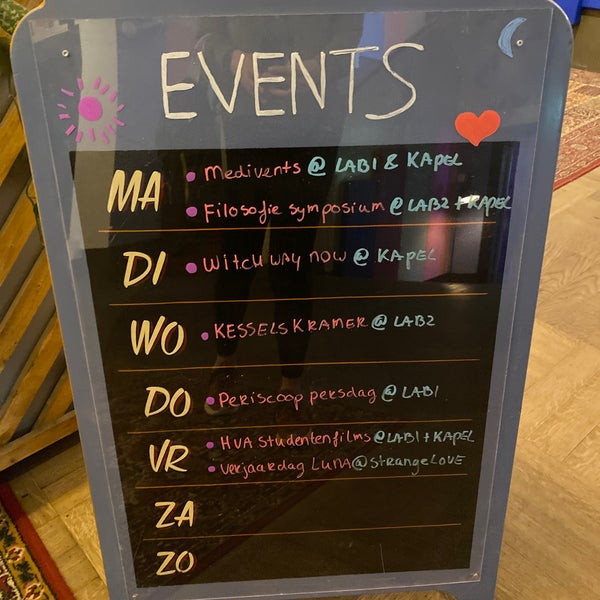 EVENTS
MA
• Medivents @ LAB1 & KAPEL
• Filosofie symposium @ LAB2 + KAPEL
DI
• Witch way now @ KAPEL
WO
• KESSELSKRAMER @ LAB2
DO
• Periscoop persdag @ LAB1
VR
• HVA studentenfilms @ LAB1 + KAPEL
• Verjaardag LUNA @ STRANGELOVE
ZA
ZO